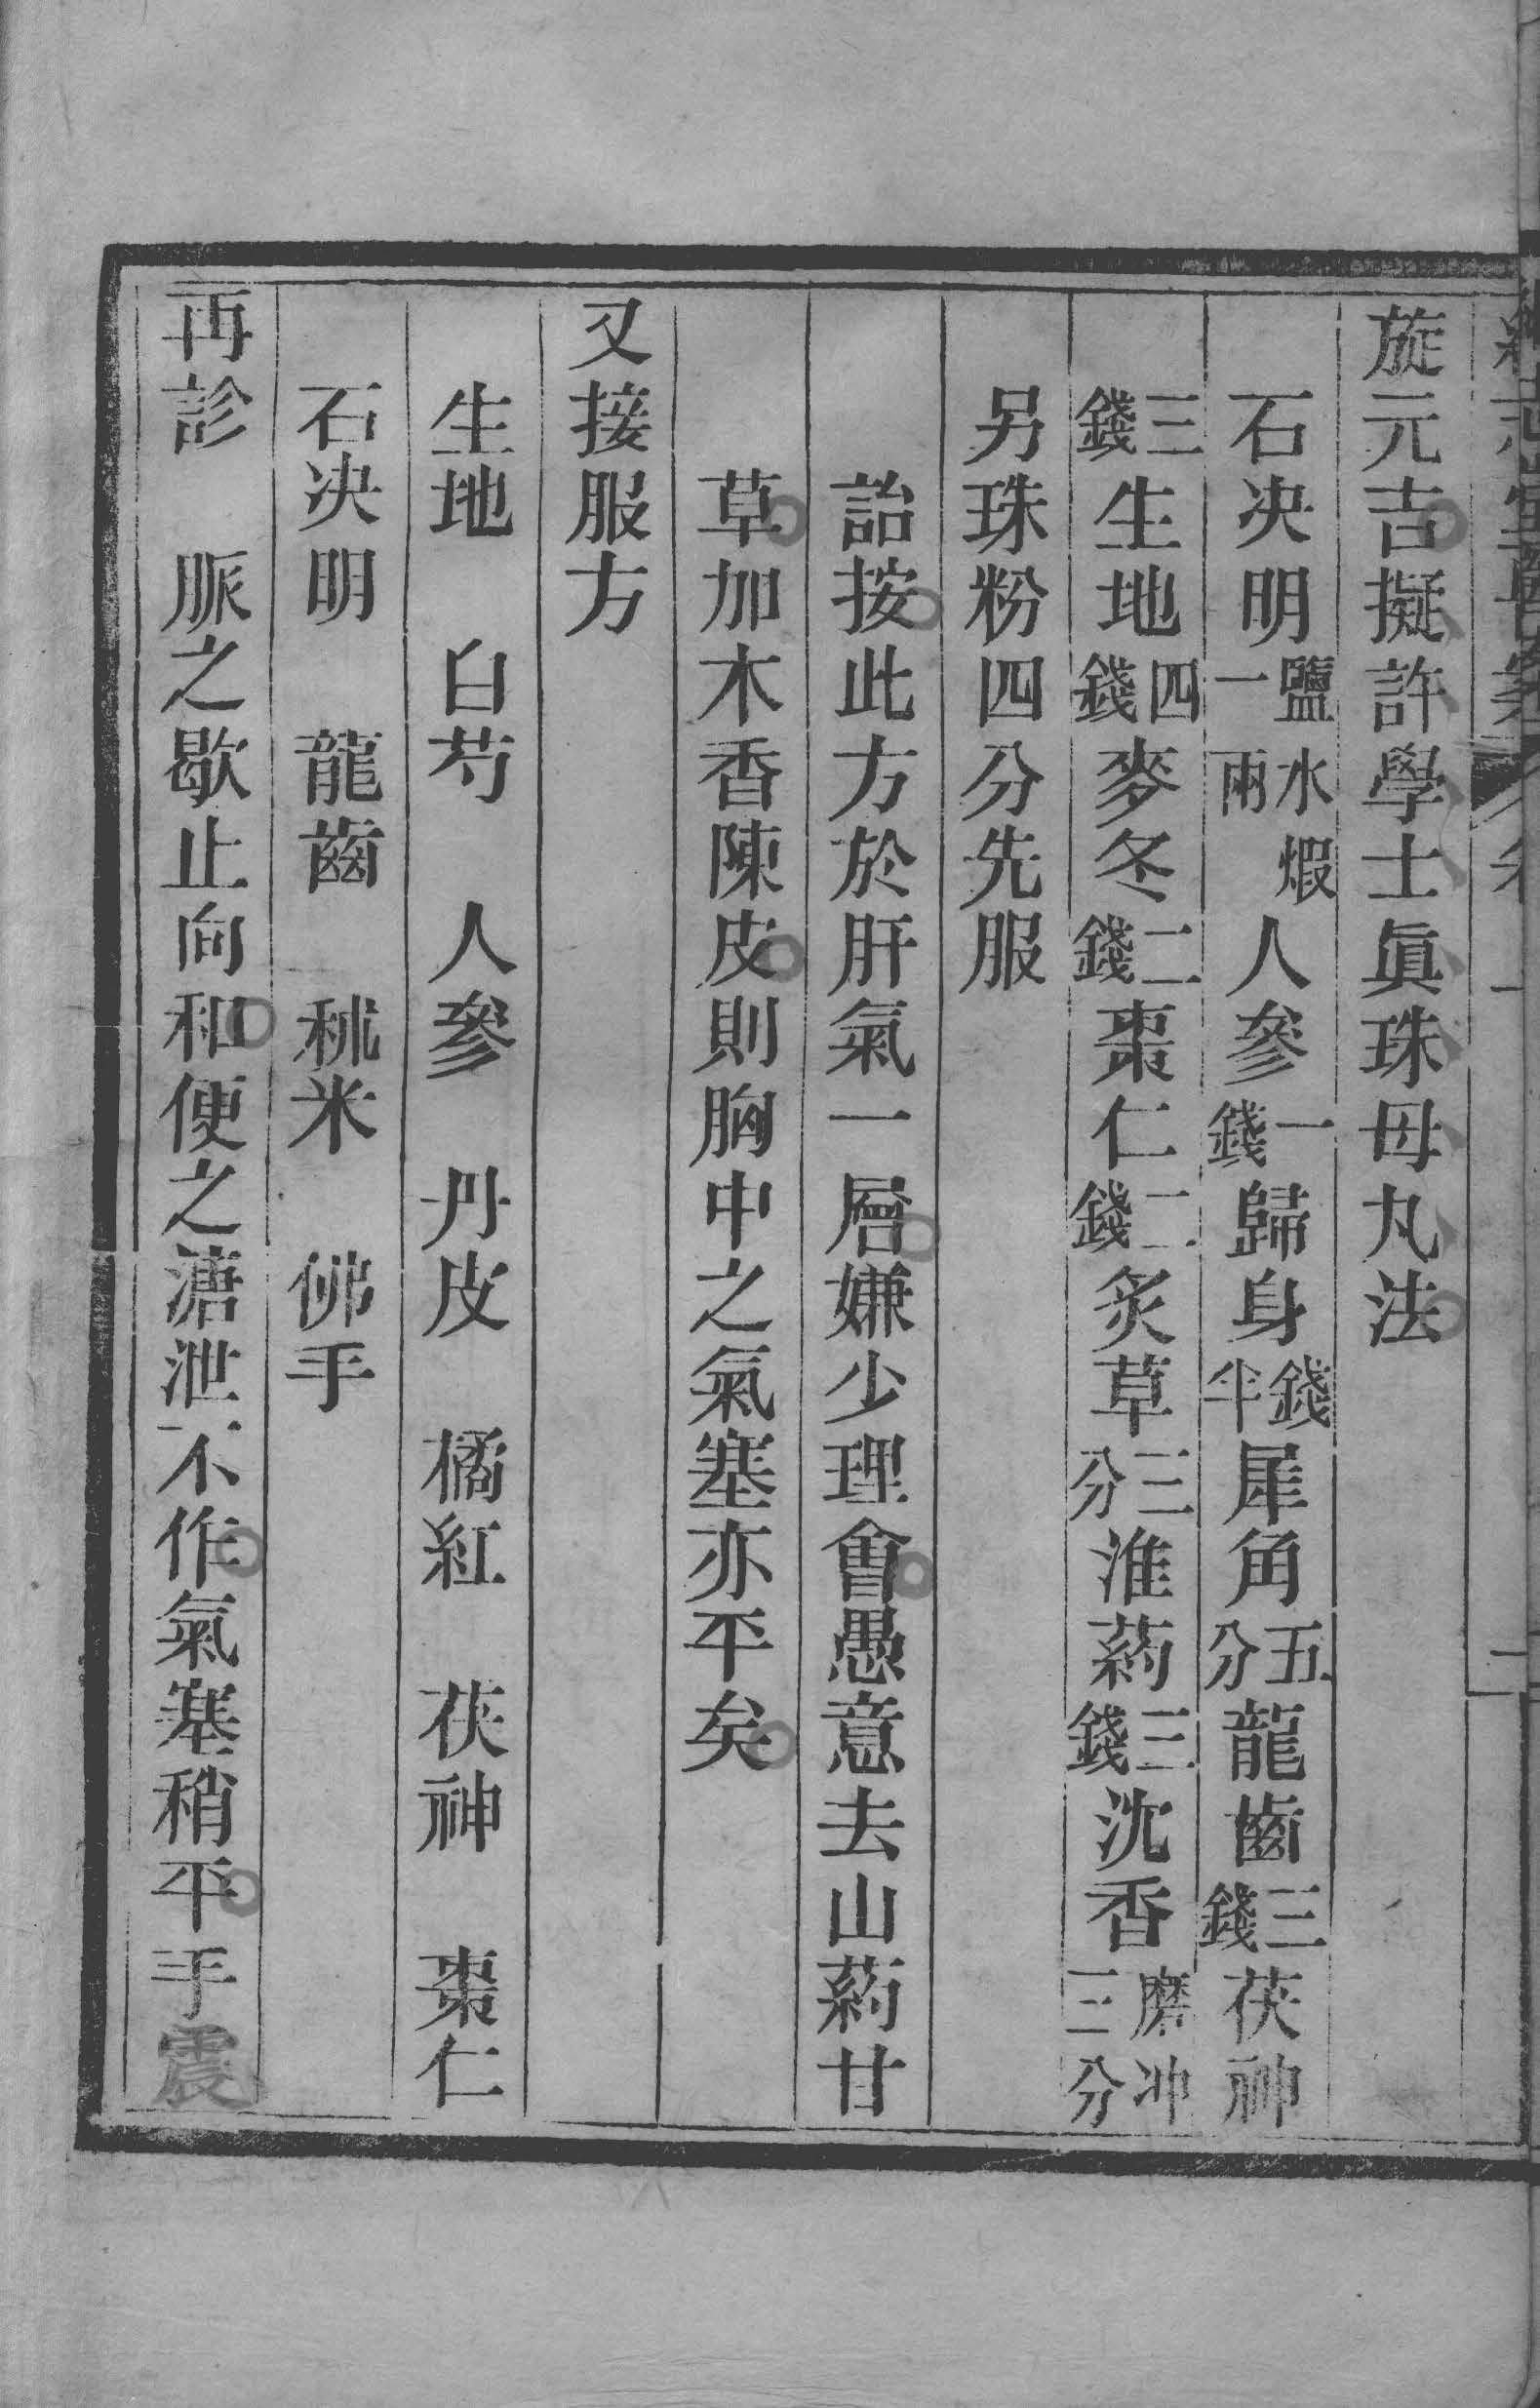 旋元吉擬許學士眞珠母丸法
石決明鹽水煆一兩人參一錢歸身錢半犀角五分龍齒三錢茯神
三錢生地四錢麥冬二錢棗仁二錢炙草三分淮葯三錢沈香磨冲三分
另珠粉四分先服
詒按此方於肝氣一層嫌少理會愚意去山葯甘
草加木香陳皮則胸中之氣塞亦平矣
又接服方
生地　白芍　人參　丹皮　橘紅　茯神　棗仁
石決明　龍齒　秫米　佛手
再診　脈之歇止向和便之溏泄不作氣塞稍平手震